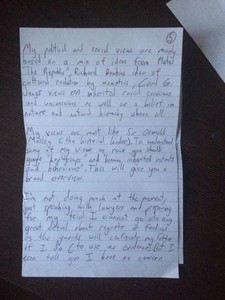 5
My political and social views are mainly
based on a mix of ideas from Plato's
"The Republic", Richard Dawkins idea of
cultural evolution by memetics, Carl G
Jung's views on inherited racial conscious
and unconscious as well as a belief in
nature and natural hierarchy above all.
My views are most like Sir Oswald
Mosley's (the historical leader). To understand
some of my views on race you should
google and human inherited instincts
and behaviours". This will give you a
broad overview.
I'm not doing much at the moment,
just speaking with lawyers and preparing
for my trial. I cannot go into any
great detail about regrets or feelings
as the guards will confiscate my letter
if I do (to use as evidence). But I
can tell you I have no